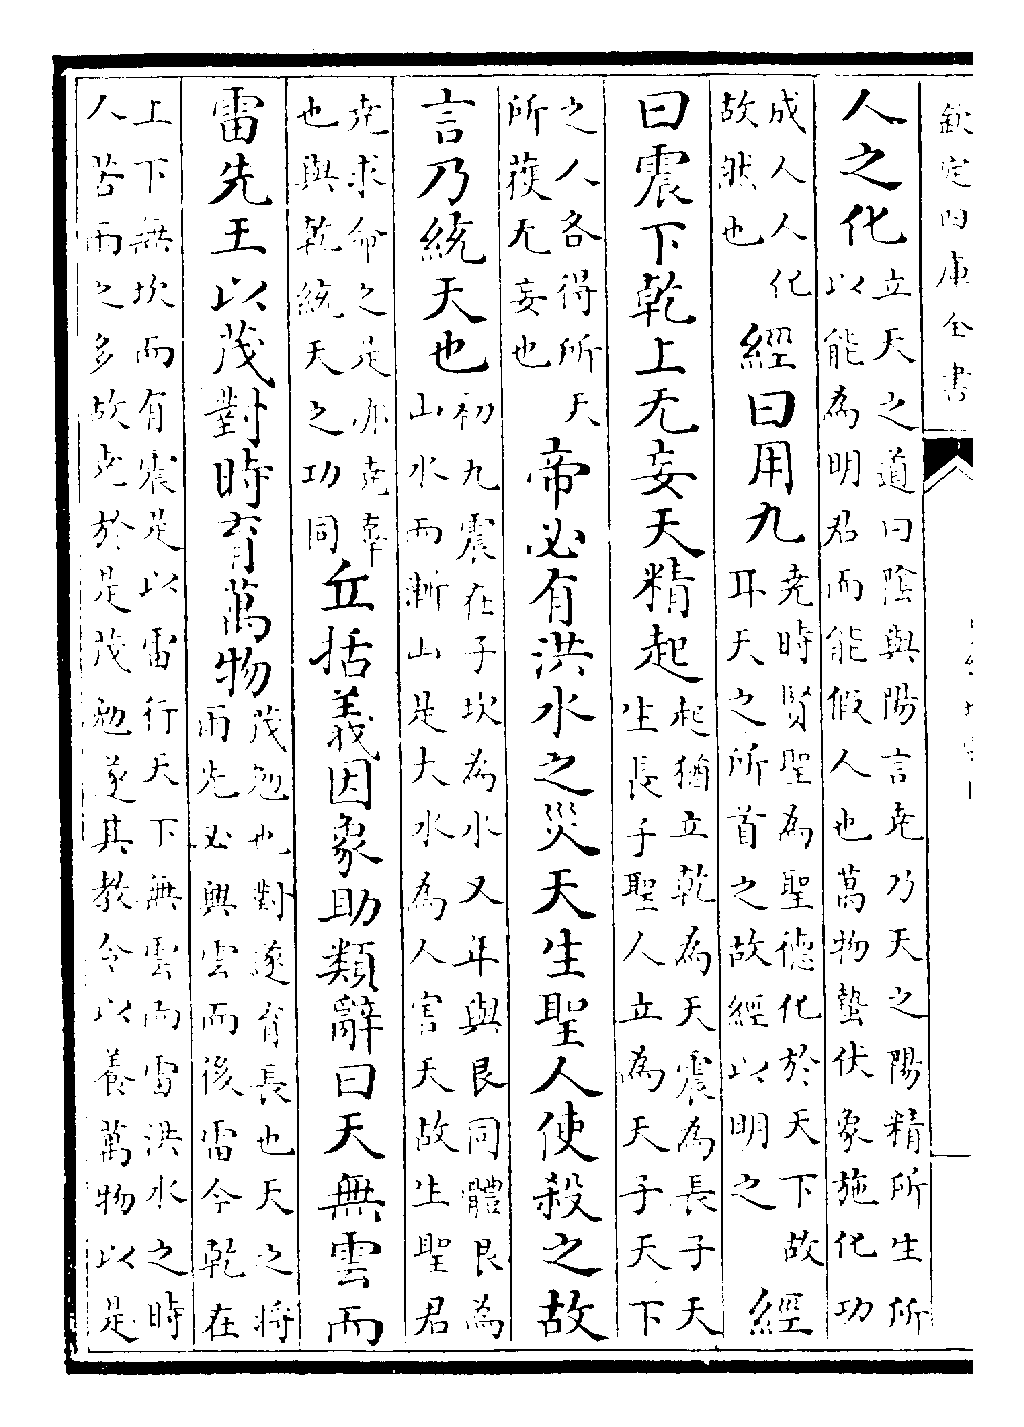 欽定四庫全書
人之化立天之道曰陰與陽言尭乃天之陽精所生所以能為明君而能假人也萬物蟄伏象施化功
成人人化故然也經曰用九尭時賢聖為聖德化於天下故耳天之所首之故經以明之經
曰震下乾上无妄天精起起猶立乾為天震為長子天生長子聖人立為天子天下
之人各得所天所獲无妄也帝必有洪水之災天生聖人使殺之故
言乃統天也初九震在子坎為水又年與艮同體艮為山水而漸山是大水為人害天故生聖君
尭求命之是亦尭率也與乾統天之功同丘括義因象助類辭曰天無雲而
雷先王以茂對時育萬物茂勉也對遂育長也天之將雨先必興雲而後雷今乾在
上下無坎而有震是以雷行天下無雲而雷洪水之時人苦雨之多故尭於是茂勉遂其教令以養萬物以是